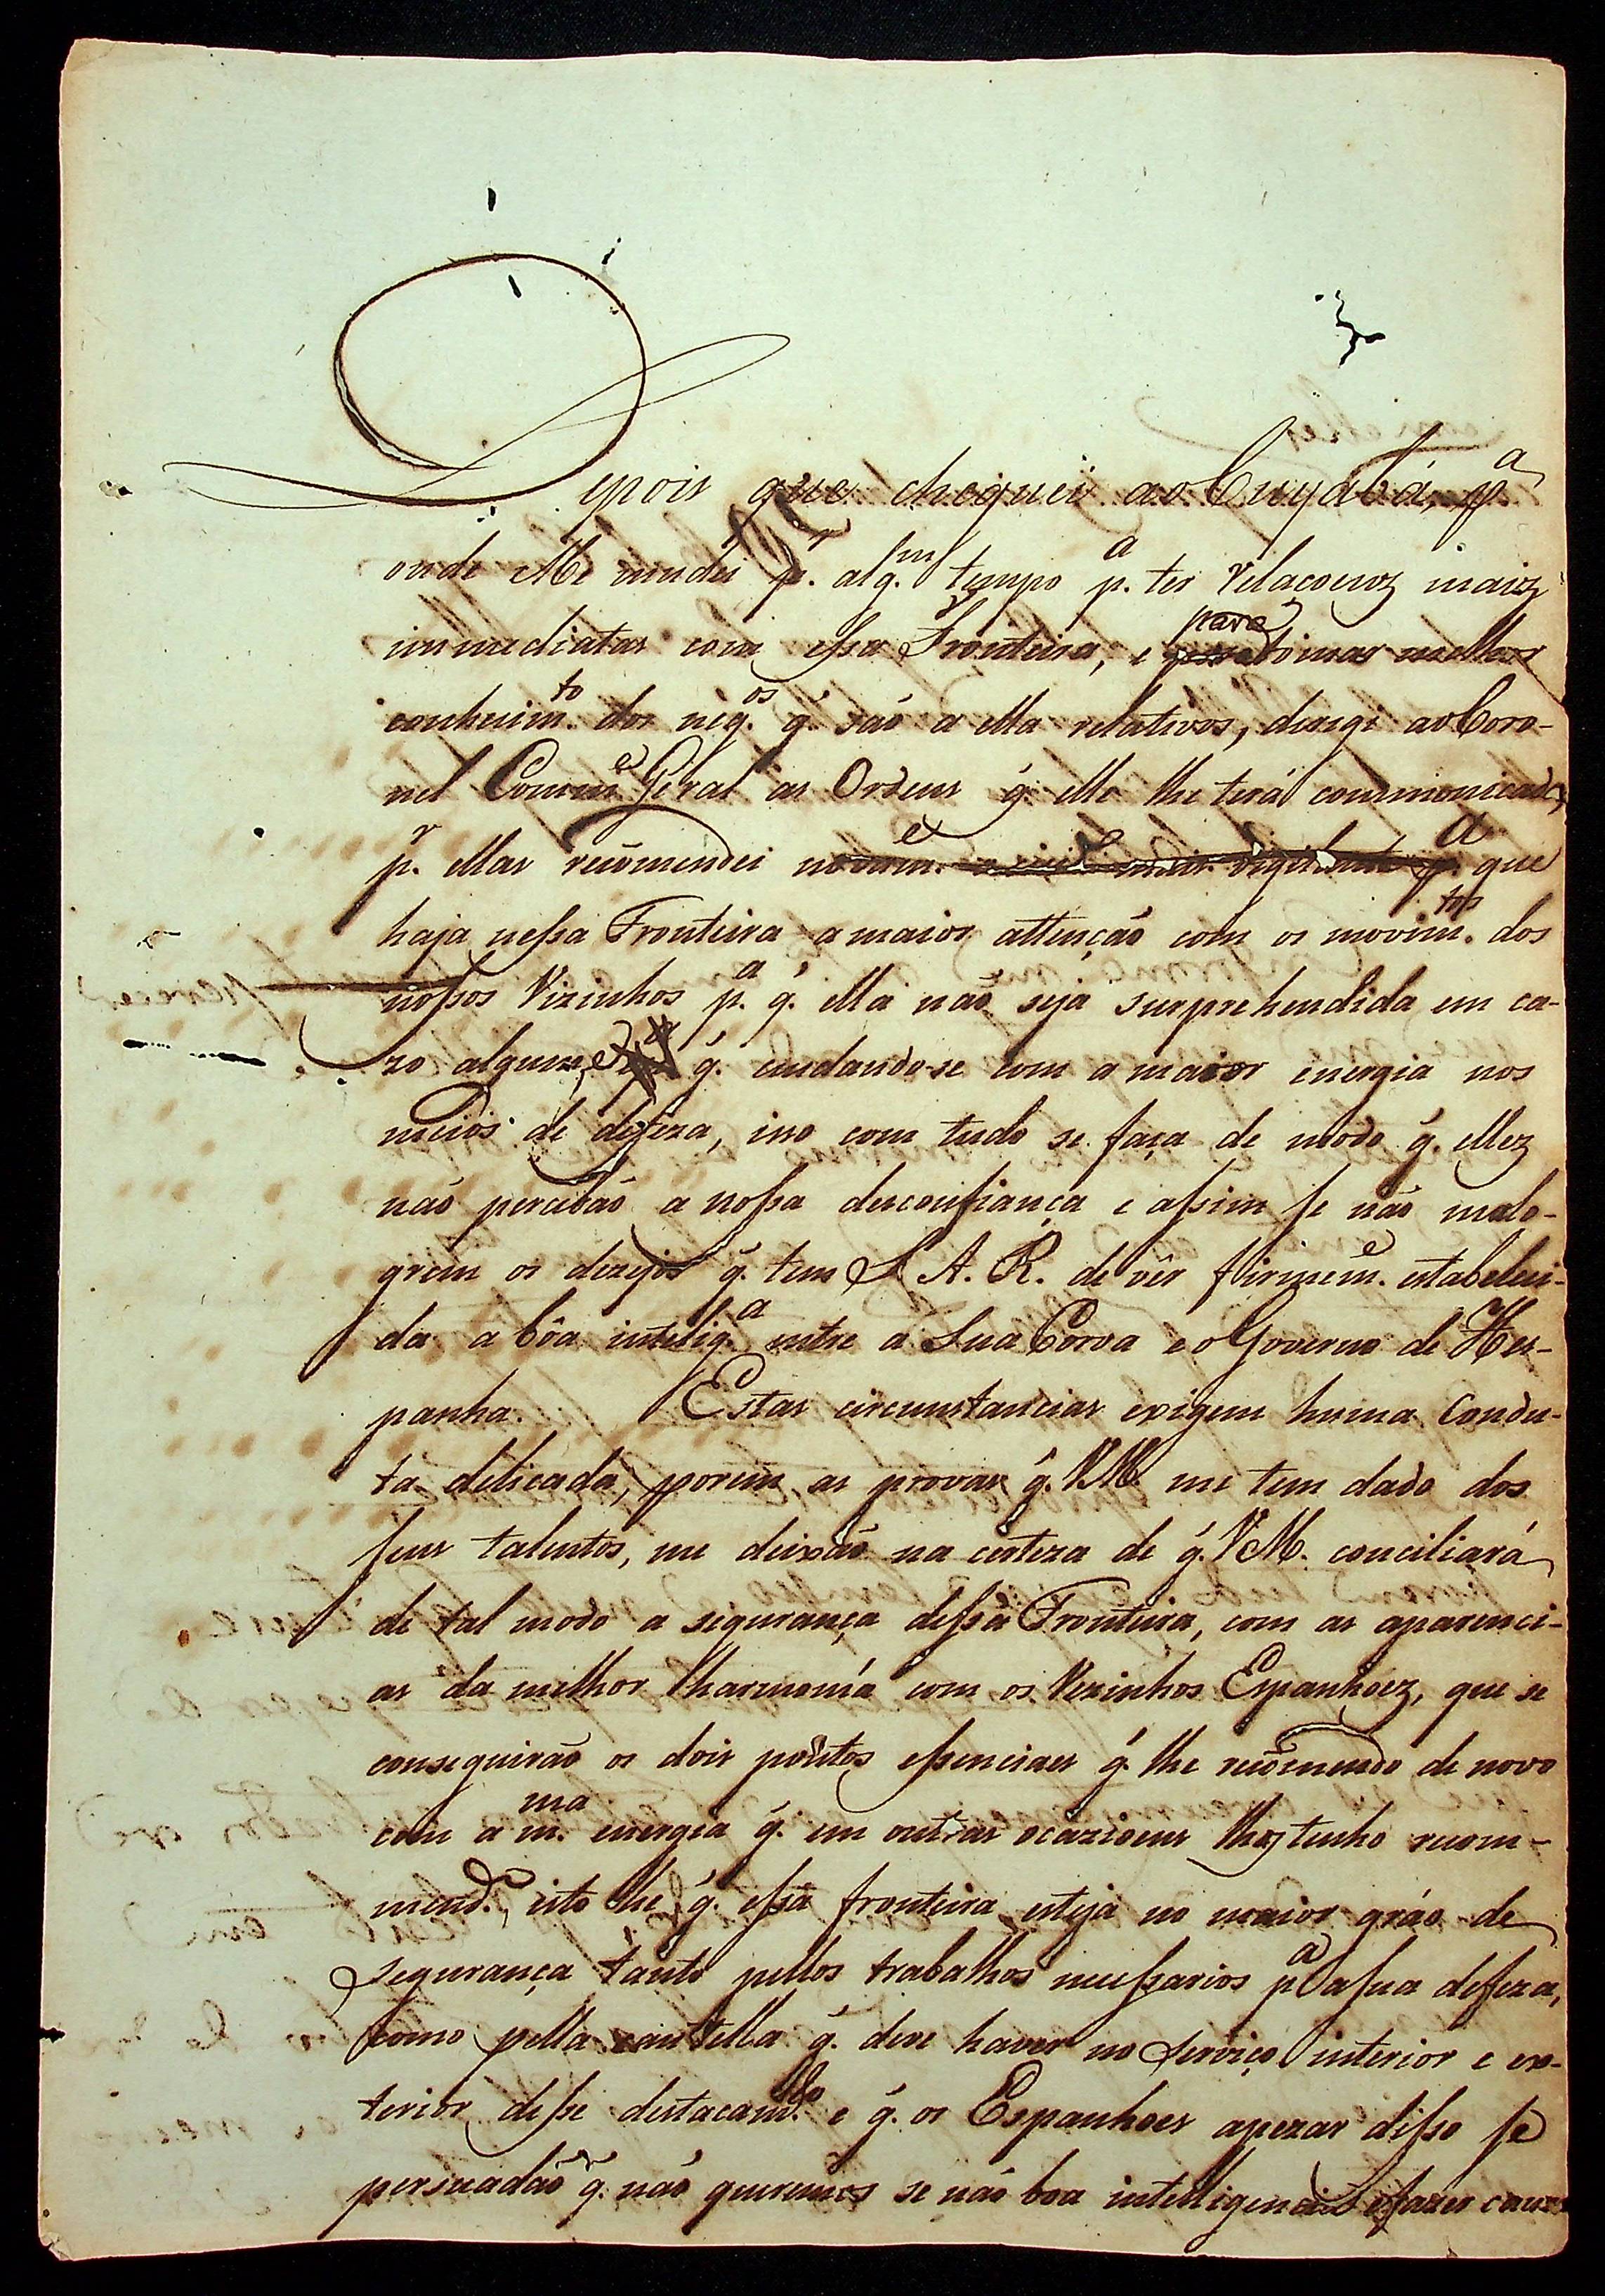 Depois que cheguei ao Cuyabá, p.ª
onde Me mudei p.r alg.m tempo p.ª ter relaçoens maiz
immediatas com essa Fronteira, e para tomar melhor
conhecim.to dos neg.os q̃ são a ella relativos, dirigi ao Coro-
nel Comm.e Géral as Ordens q̃ elle lhe terá communicado,
p.r ellas recõmendei novam.e p.ª que
haja nessa Fronteira a maior attenção com os movim.tos dos
nossos Vizinhos p.ª q̃ ella não seja surprehendida em ca-
zo algum, e q̃ cuidando-se com a maior energia nos
meios de defeza, isso com tudo se faça de modo q̃ ellez
não percebão a nossa desconfiança e assim se não malo-
grem os dezejos q̃ tem S. A. R. de vêr firmem.e estabeleci-
da a bôa intelig.ª entre a Sua Coroa e o Governo de Hes-
panha. Estas circunstancias exigem huma Condu-
ta delicada, porem as provas q̃ VM. me tem dado dos
seus talentos, me deixão na certeza de q̃ VM. conciliará
de tal modo a segurança dessa Fronteira, com as aparenci-
as da melhor harmonía com os Vezinhos Espanhoez, que se
conseguirão os dois pontos essenciaes q̃ lhe recõmendo de novo
com a m.ma energia q̃ em outras ocazioens lhos tenho recom-
mend.o, isto he q̃ essa fronteira esteja no maior gráo de
segurança tanto pellos trabalhos necessarios p.ª a sua defeza,
como pella cautella q̃ deve haver no Serviço interior e ex-
terior desse destacam.to e q̃ os Espanhoes apezar disso se
persuadão q̃ não queremos se não boa intelligencia e fazer cauz